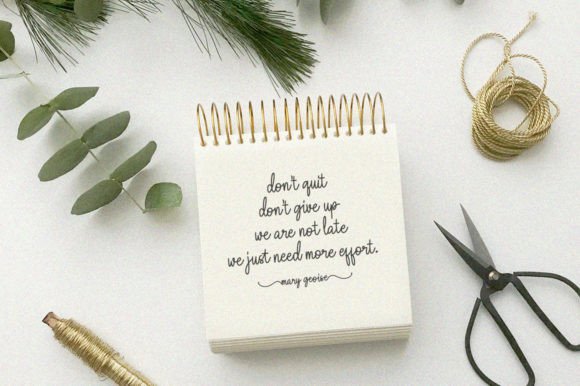 don't quit
don't give up
we are not late
we just need more effort.
mary geoise